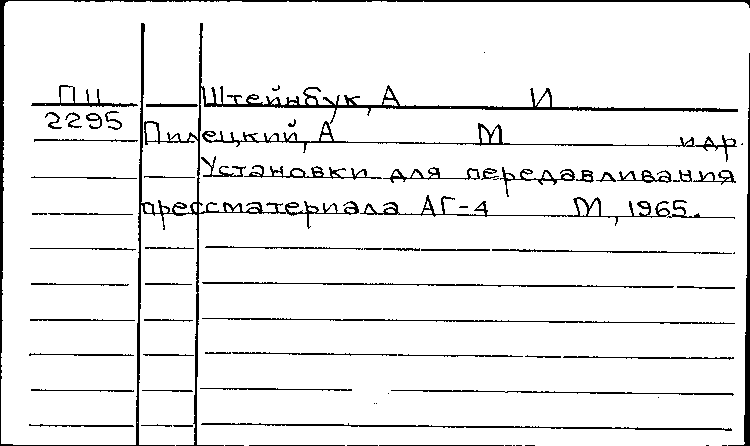 ПЦ Штейнбук, А И
2295 Пилецкий, А М и др.
Установки для передавливания
прессматериала АГ-4 М, 1965.